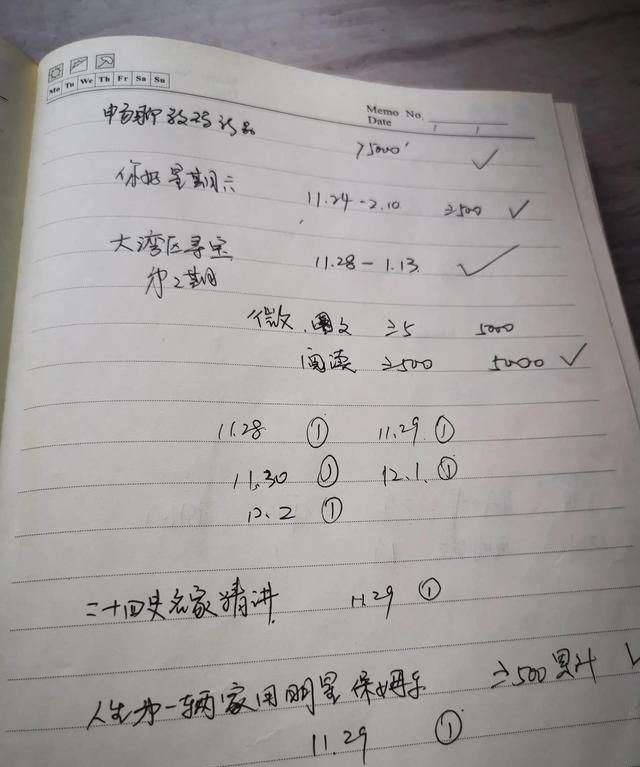 Mo Tu We Th Fr Sa Su
Memo No.
Date
>5000
你好星期六 11.24-2.10 ≥500 ✓
大湾区寻宝 11.28-1.13. ✓
第2期
微文 图文 ≥5 5000
阅读 ≥500 5000 ✓
11.28 ① 11.29. ①
11.30 ① 12.1. ①
12.2 ①
二十四史名家精讲 11.29 ①
人生第一辆家用明星保姆车 ≥500累计 ✓
11.29 ①